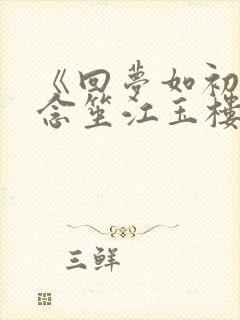 《回夢如初
念笙江玉樓
三鮮